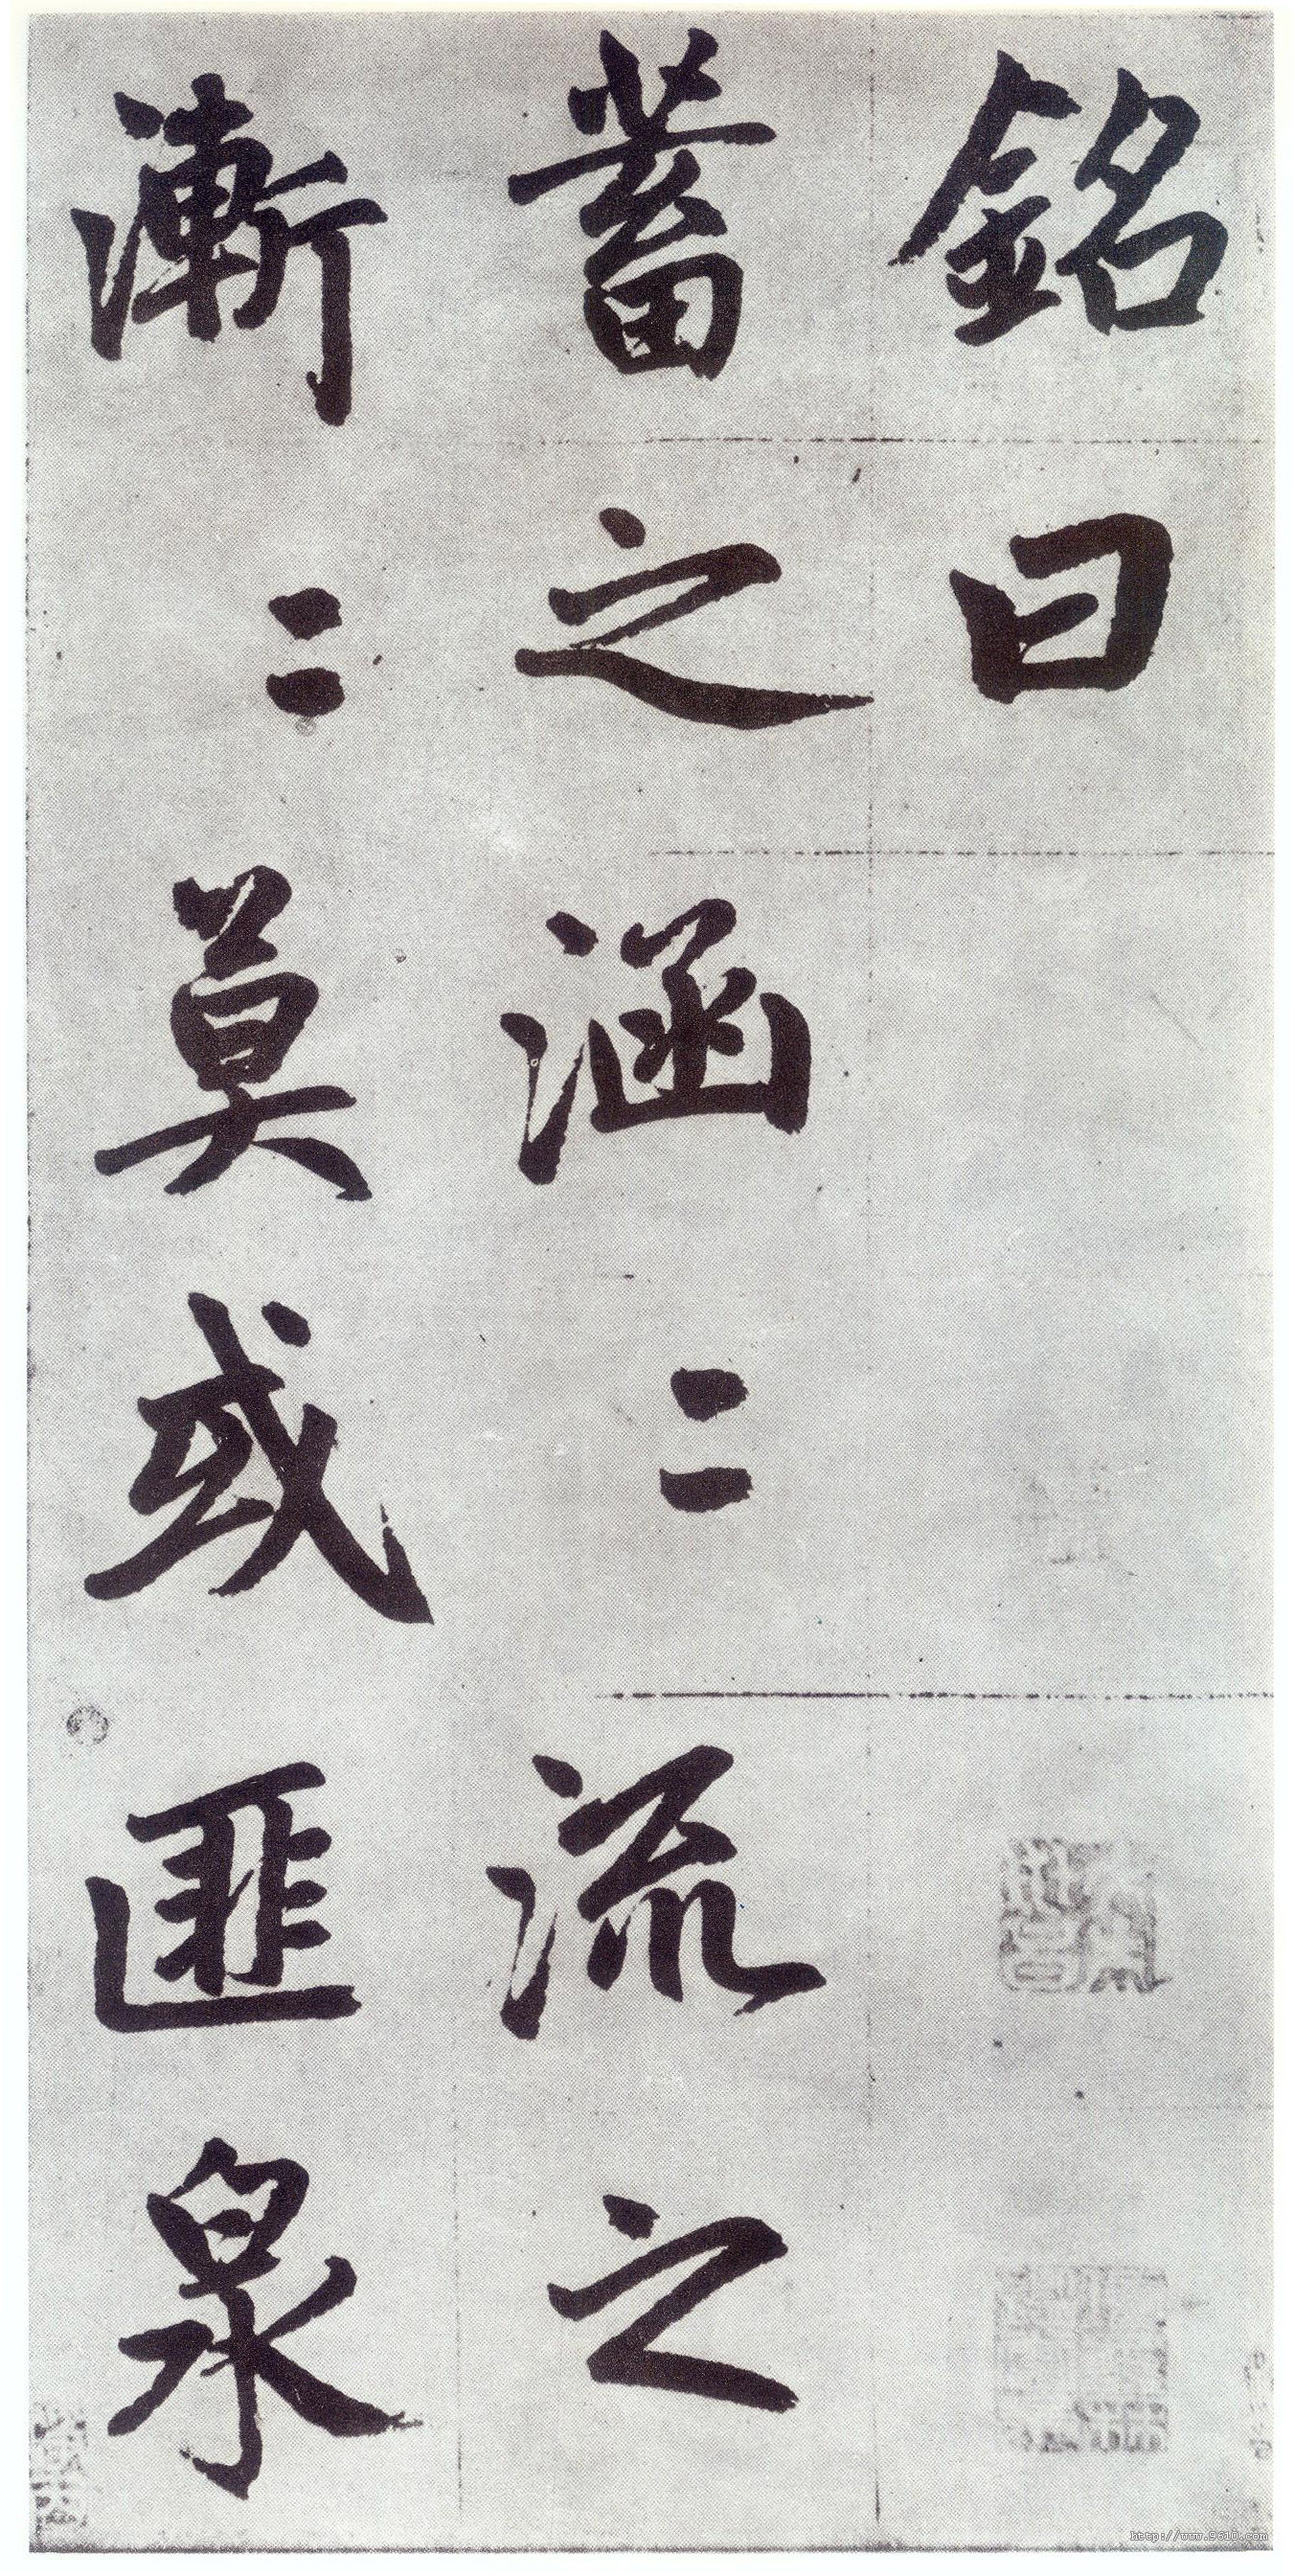 銘曰
蓄之涵〻流之
漸〻莫或匪泉
http://www.9610.com